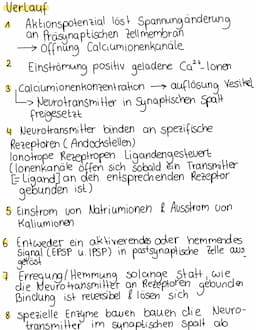 Verlauf
1 Aktionspotenzial löst Spannungänderung
an Präsynaptischen Zellmembran
→ Öffnung Calciumionenkanäle
2 Einströmung positiv geladene Ca²⁺-Ionen
3 Calciumionenkonzentration → auflösung Vesikel
↳ Neurotransmitter in Synaptischen Spalt
freigesetzt
4 Neurotransmitter binden an spezifische
Rezeptoren (Andockstellen)
Ionotrope Rezeptropen Ligandengesteuert
(Ionenkanäle öffen sich sobald ein Transmitter
[= Ligand] an den entsprechenden Rezeptor
gebunden ist)
5 Einstrom von Natriumionen & Ausstrom von
Kaliumionen
6 Entweder ein aktivierendes oder hemmendes
Signal (EPSP u. IPSP) in postsynaptische Zelle aus
gelöst
7 Erregung/Hemmung solange statt, wie
die Neurotransmitter an Rezeptoren gebunden
Bindung ist reversibel & lösen sich
8 spezielle Enzyme bauen bauen die Neuro-
transmitter im synaptischen Spalt ab